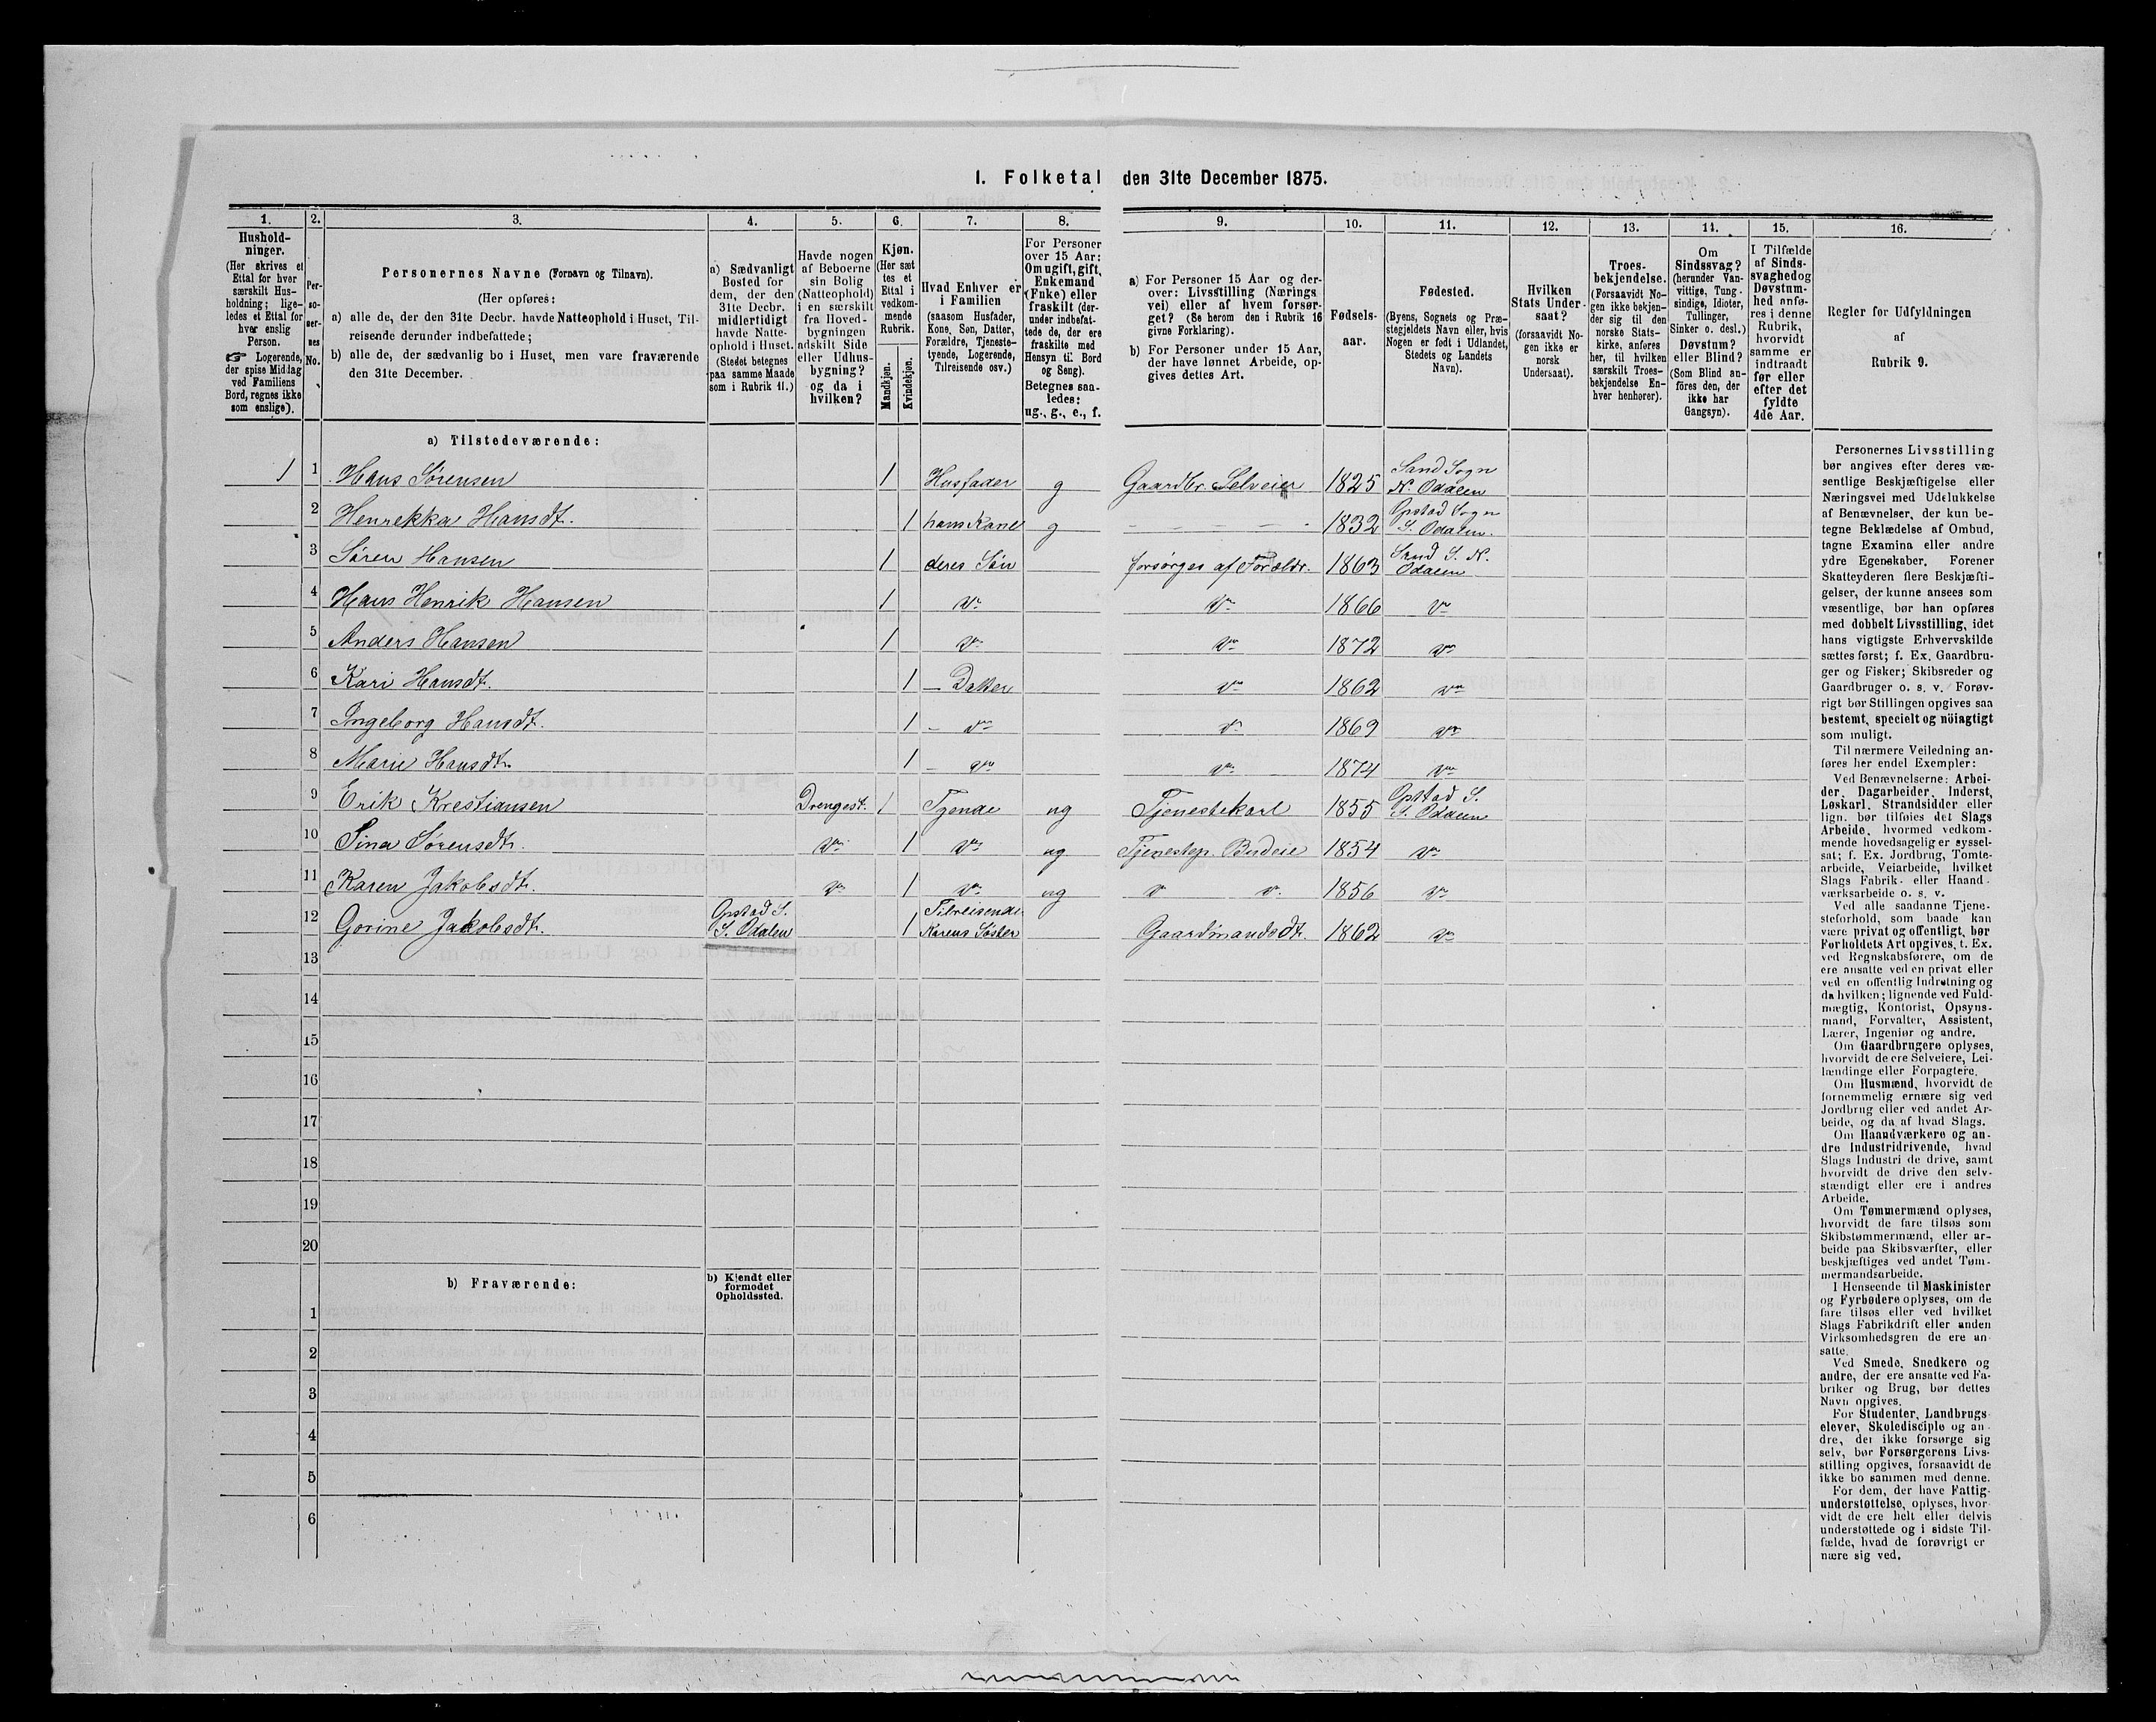 1. Folketal den 31te December 1875.
1.
Hushold-
ninger.
(Her skrives et
Ettal for hver
særskilt Hus-
holdning; lige-
ledes et Ettal for
hver enslig
Person.
☞ Logerende,
der spise Middag
ved Familiens
Bord, regnes ikke
som enslige).
2.
Per-
so-
ner-
nes
No.
3.
Personernes Navne (Fornavn og Tilnavn).
(Her opføres:
a) alle de, der den 31te Decbr. havde Natteophold i Huset, Til-
reisende derunder indbefattede;
b) alle de, der sædvanlig bo i Huset, men vare fraværende
den 31te December.
4.
a) Sædvanligt
Bosted for
dem, der den
31te Decbr.
midlertidigt
havde Natte-
ophold i Huset.
(Stedet betegnes
paa samme Maade
som i Rubrik 11.)
5.
Havde nogen
af Beboerne
sin Bolig
(Natteophold)
i en særskilt
fra Hoved-
bygningen
adskilt Side
eller Udhus-
bygning?
og da i
hvilken?
6.
Kjøn.
(Her sæt
tes et
Ettal i
vedkom-
mende
Rubrik.
Mandkjøn.
Kvindekjøn.
7.
Hvad Enhver er
i Familien
(saasom Husfader,
Kone, Søn, Datter,
Forældre, Tjeneste-
tyende, Logerende,
Tilreisende osv.)
8.
For Personer
over 15 Aar:
Om ugift, gift,
Enkemand
(Enke) eller
fraskilt (der-
under indbefat-
tede de, der ere
fraskilte med
Hensyn til Bord
og Seng).
Betegnes saa-
ledes:
ug., g., e., f.
9.
a) For Personer 15 Aar og der-
over: Livsstilling (Nærings
vei) eller af hvem forsør-
get? (Se herom den i Rubrik 16
givne Forklaring).
b) For Personer under 15 Aar,
der have lønnet Arbeide, op-
gives dettes Art.
10.
Fødsels-
aar.
11.
Fødested.
(Byens, Sognets og Præ-
stegjeldets Navn eller, hvis
Nogen er født i Udlandet,
Stedets og Landets
Navn).
12.
Hvilken
Stats Under-
saat?
(forsaavidt No-
gen ikke er
norsk
Undersaat).
13.
Troes-
bekjendelse.
(Forsaavidt No-
gen ikke bekjen-
der sig til den
norske Stats-
kirke, anføres
her, til hvilken
særskilt Troes-
bekjendelse En-
hver henhører).
14.
Om
Sindssvag?
(herunder Van-
vittige, Tung-
sindige, Idioter,
Tullinger,
Sinker o. desl.)
Døvstum?
eller Blind?
(Som Blind an-
føres den, der
ikke har
Gangsyn).
15.
I Tilfælde
af Sinds-
svaghed og
Døvstum-
hed anfø-
res i denne
Rubrik,
hvorvidt
samme er
indtraadt
før eller
efter det
fyldte
4de Aar.
16.
Regler for Udfyldningen
af
Rubrik 9.
a) Tilstedeværende:
1 1 Hans Sørensen 1 Husfader g Gaardbr. Selveier 1825 Sand Sogn N. Odalen
2 Henrekka Hansdt. 1 hans Kone g - - - - - 1832 Opstad Sogn S. Odalen.
3 Søren Hansen 1 deres Søn forsørges af Forældr. 1863 Sand S. N. Odalen
4 Hans Henrik Hansen 1 do do 1866 do
5 Anders Hansen 1 do do 1872 do
6 Kari Hansdt. 1 - Datter do 1862 do
7 Ingeborg Hansdt. 1 - do do 1869 do
8 Marie Hansdt. 1 - do do 1874 do
9 Erik Krestiansen Drengest. 1 Tyende ug Tjenestekarl 1855 Opstad S. S. Odalen
10 Sina Sørensdt. do 1 do ug Tjenestep. Budeie 1854 do
11 Karen Jakobsdt. do 1 do ug do do 1856 do
12 Gorine Jakobsdt. Opstad S. S. Odalen 1 Tilreisende Karens Søster Gaardmandsdt. 1862 do
13
14
15
16
17
18
19
20
b) Fraværende:
b) Kjendt eller
formodet
Opholdssted.
1
2
3
4
5
6
Personernes Livsstilling
bør angives efter deres væ-
sentlige Beskjæftigelse eller
Næringsvei med Udelukkelse
af Benævnelser, der kun be-
tegne Beklædelse af Ombud,
tagne Examina eller andre
ydre Egenskaber. Forener
Skatteyderen flere Beskjæfti-
gelser, der kunne ansees som
væsentlige, bør han opføres
med dobbelt Livsstilling, idet
hans vigtigste Erhvervskilde
sættes først; f. Ex. Gaardbru-
ger og Fisker; Skibsreder og
Gaardbruger o. s. v. Forøv-
rigt bør Stillingen opgives saa
bestemt, specielt og nöiagtigt
som muligt.
Til nærmere Veiledning an-
føres her endel Exempler:
Ved Benævnelserne: Arbei-
der, Dagarbeider, Inderst,
Løskarl, Strandsidder eller
lign. bør tilføies det Slags
Arbeide, hvormed vedkom-
mende hovedsagelig er syssel-
sat; f. Ex. Jordbrug, Tomte-
arbeide, Veiarbeide, hvilket
Slags Fabrik- eller Haand-
værksarbeide o. s. v.
Ved alle saadanne Tjene-
steforhold, som baade kan
være privat og offentligt, bør
Forholdets Art opgives, t. Ex.
ved Regnskabsførere, om de
ere ansatte ved en privat eller
ved en offentlig Indretning og
da hvilken; lignende ved Fuld-
mægtig, Kontorist, Opsyns-
mand, Forvalter, Assistent,
Lærer, Ingeniør og andre.
Om Gaardbrugere oplyses,
hvorvidt de ere Selveiere, Lei-
lændinge eller Forpagtere.
Om Husmænd, hvorvidt de
fornemmelig ernære sig ved
Jordbrug eller ved andet Ar-
beide, og da af hvad Slags.
Om Haandværkere og an-
dre Industridrivende, hvad
Slags Industri de drive, samt
hvorvidt de drive den selv-
stændigt eller ere i andres
Arbeide.
Om Tømmermænd oplyses,
hvorvidt de fare tilsøs som
Skibstømmermænd, eller ar-
beide paa Skibsværfter, eller
beskjæftiges ved andet Tøm-
mermandsarbeide.
I Henseende til Maskinister
og Fyrbødere oplyses, om de
fare tilsøs eller ved hvilket
Slags Fabrikdrift eller anden
Virksomhedsgren de ere an-
satte.
Ved Smede, Snedkere og
andre, der ere ansatte ved Fa-
briker og Brug, bør dettes
Navn opgives.
For Studenter, Landbrugs-
elever, Skoledisciple og an-
dre, der ikke forsørge sig
selv, bør Forsørgerens Livs-
stilling opgives, forsaavidt de
ikke bo sammen med denne.
For dem, der have Fattig-
understøttelse, oplyses, hvor-
vidt de ere helt eller delvis
understøttede og i sidste Til-
fælde, hvad de forøvrigt er
nære sig ved.